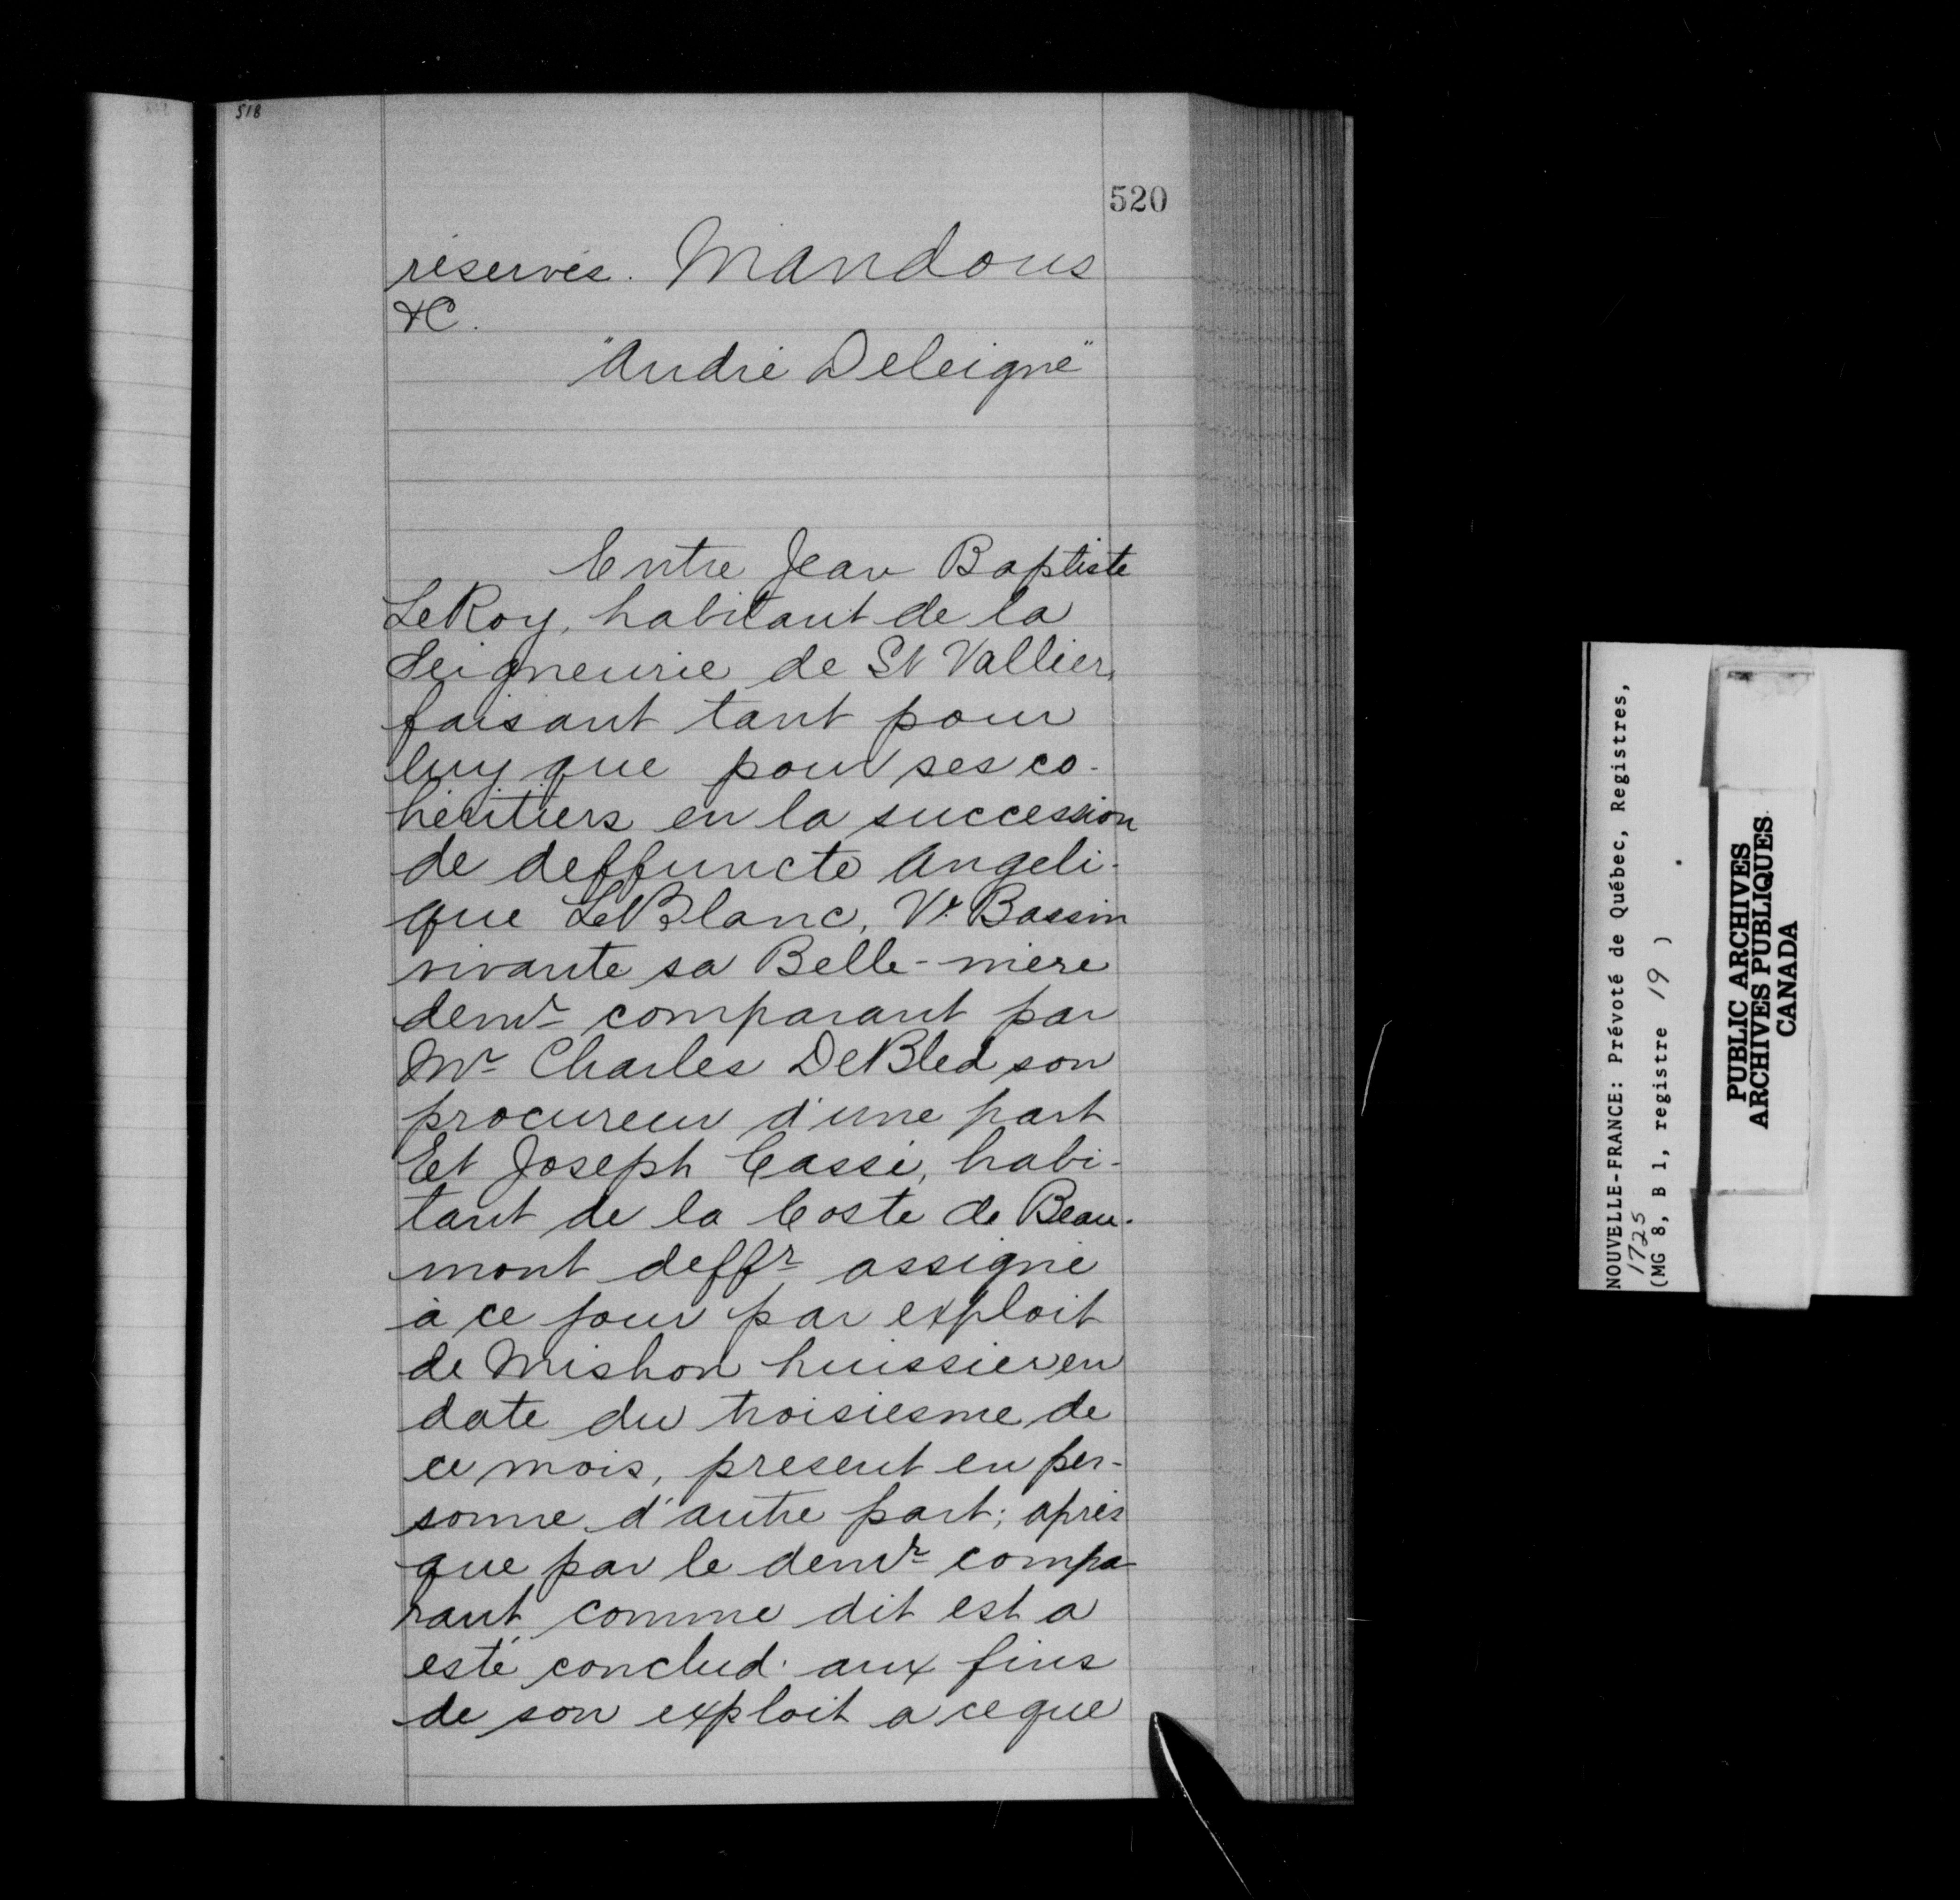 518
520
réservés. Mandons
&C.
"André Deleigne"
Entre Jean Baptiste
LeRoy, habitant de la
Seigneurie de St Vallier,
faisant tant pour
luy que pour ses co-
héritiers en la succession
de deffuncte Angeli-
que LeBlanc, Ve Bassin
vivante sa Belle-mère
demr comparant par
Mr Charles DeBled son
procureur d'une part
Et Joseph Cassé, habi-
tant de la Coste de Beau-
mont deffr assigné
à ce jour par exploit
de Mishon huissier en
date du troisiesme de
ce mois, présent en per-
sonne d'autre part; après
que par le demr compa
rant comme dit est a
esté conclud aux fins
de son exploit a ce que
NOUVELLE-FRANCE: Prévoté de Québec, Registres,
1725
(MG 8, B 1, registre 19 )
PUBLIC ARCHIVES
ARCHIVES PUBLIQUES
CANADA